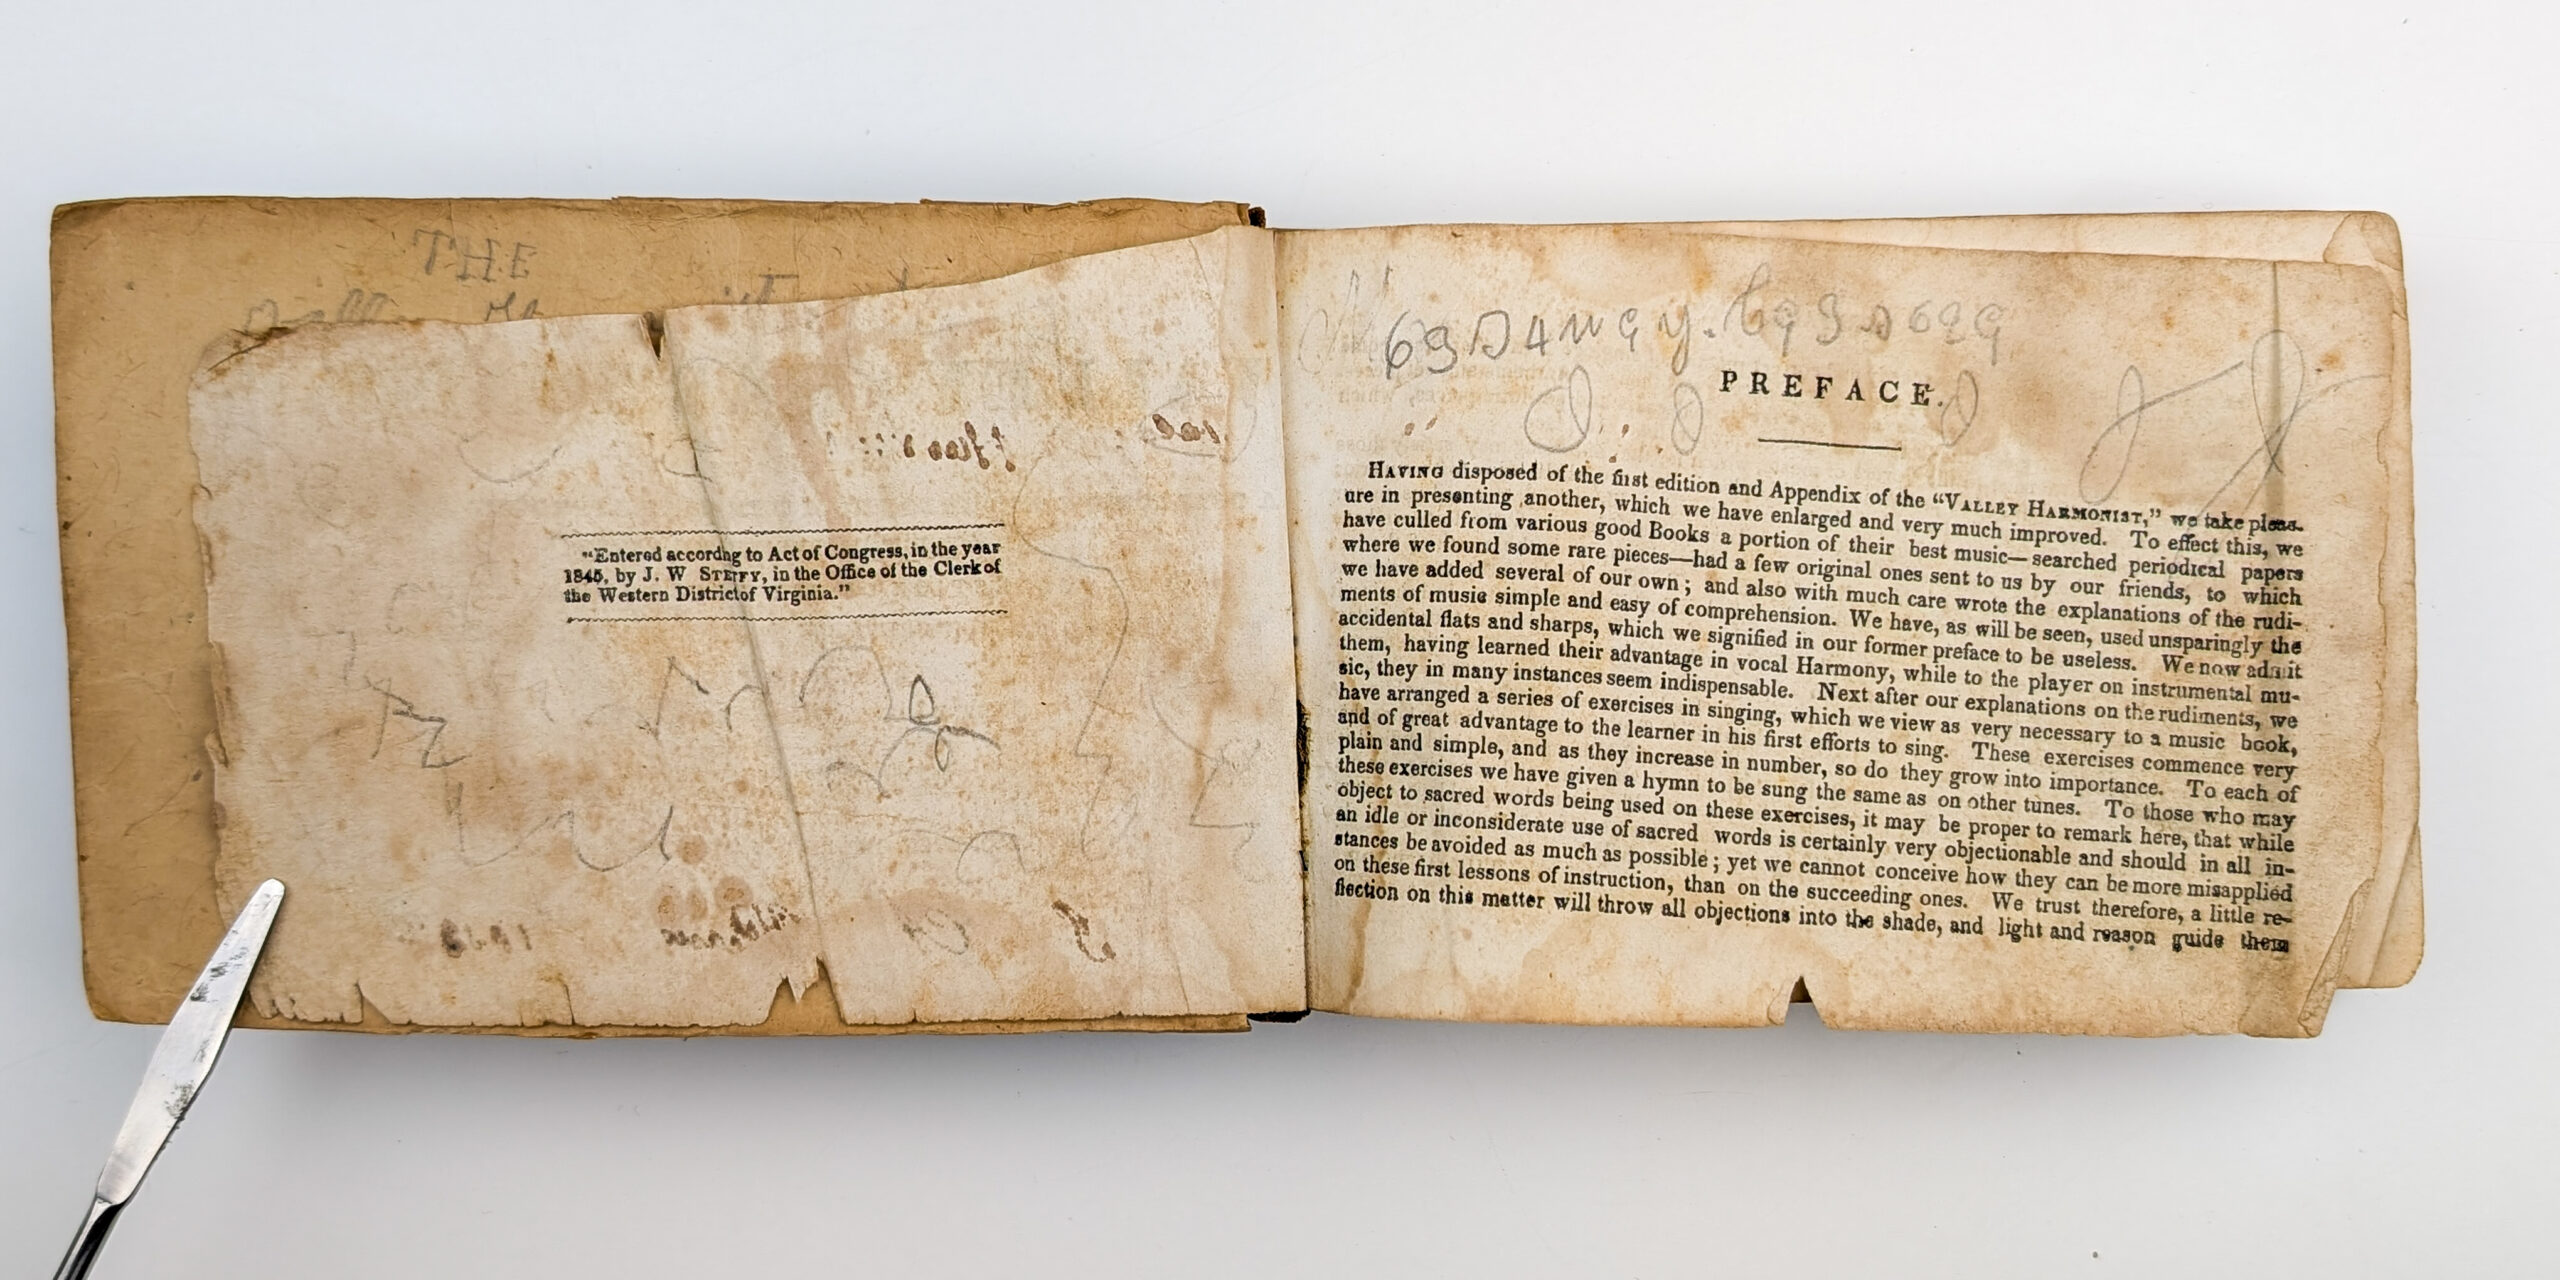 THE
"Entered accordng to Act of Congress, in the year
1845, by J. W STEFFY, in the Office of the Clerk of
the Western District of Virginia."
PREFACE.
HAVING disposed of the first edition and Appendix of the "VALLEY HARMONIST," we take pleas-
ure in presenting another, which we have enlarged and very much improved. To effect this, we
have culled from various good Books a portion of their best music—searched periodical papers
where we found some rare pieces—had a few original ones sent to us by our friends, to which
we have added several of our own; and also with much care wrote the explanations of the rudi-
ments of music simple and easy of comprehension. We have, as will be seen, used unsparingly the
accidental flats and sharps, which we signified in our former preface to be useless. We now admit
them, having learned their advantage in vocal Harmony, while to the player on instrumental mu-
sic, they in many instances seem indispensable. Next after our explanations on the rudiments, we
have arranged a series of exercises in singing, which we view as very necessary to a music book,
and of great advantage to the learner in his first efforts to sing. These exercises commence very
plain and simple, and as they increase in number, so do they grow into importance. To each of
these exercises we have given a hymn to be sung the same as on other tunes. To those who may
object to sacred words being used on these exercises, it may be proper to remark here, that while
an idle or inconsiderate use of sacred words is certainly very objectionable and should in all in-
stances be avoided as much as possible; yet we cannot conceive how they can be more misapplied
on these first lessons of instruction, than on the succeeding ones. We trust therefore, a little re-
flection on this matter will throw all objections into the shade, and light and reason guide them